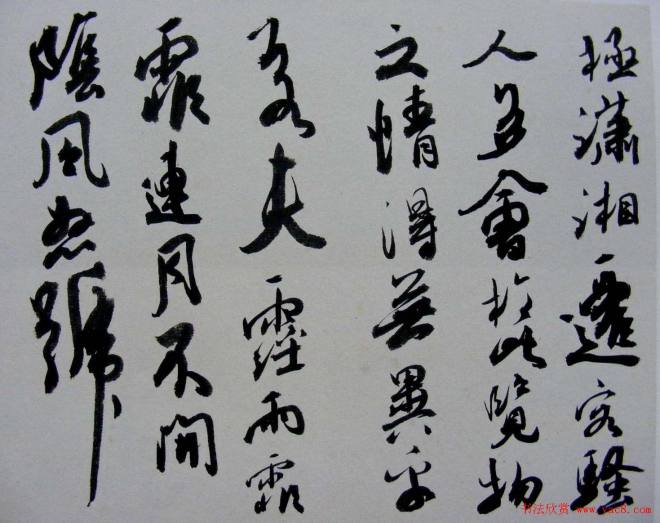 極瀟湘遷客騷
人多會於此覽物
之情得無異乎
若夫霪雨霏
霏連月不開
陰風怒號
书法欣赏 www.yac8.com